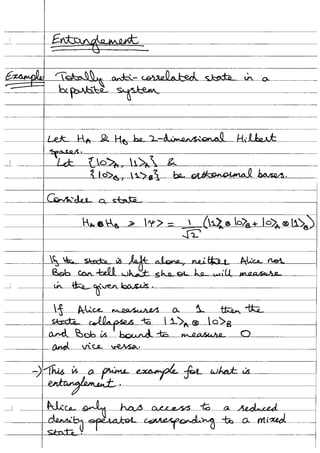 Entanglement
Example Totally anti-correlated state in a
bipartite system
Let H_A & H_B be 2-dimensional Hilbert
spaces.
Let {|0>_A, |1>_A} &
{|0>_B, |1>_B} be orthonormal bases.
Consider a state
H_A ⊗ H_B ∋ |Ψ> = 1/√2 (|1>_A ⊗ |0>_B + |0>_A ⊗ |1>_B)
If the state is left alone, neither Alice nor
Bob can tell what she or he will measure
in the given basis.
If Alice measures a 1 then the
state collapses to |1>_A ⊗ |0>_B
and Bob is bound to measure 0
and vice versa.
→) This is a prime example for what is
entanglement.
Alice only has access to a reduced
density operator corresponding to a mixed
state!